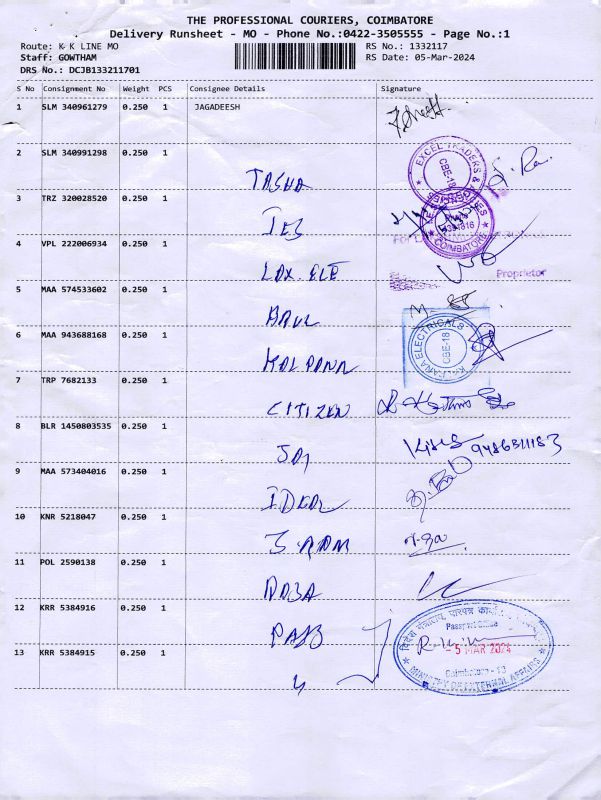 THE PROFESSIONAL COURIERS, COIMBATORE
Delivery Runsheet - MO - Phone No.:0422-3505555 - Page No.:1
Route: K K LINE MO RS No.: 1332117
Staff: GOWTHAM RS Date: 05-Mar-2024
DRS No.: DCJB133211701
S No Consignment No Weight PCS Consignee Details Signature
1 SLM 340961279 0.250 1 JAGADEESH
2 SLM 340991298 0.250 1
EXCEL TRADERS &
CBE-18
3 TRZ 320028520 0.250 1
4 VPL 222006934 0.250 1
COIMBATORE
LAX. ELE
Proprietor
5 MAA 574533602 0.250 1
ARUL
6 MAA 943688168 0.250 1
KALPANA
KALPANA ELECTRICALS
CBE-18
7 TRP 7682133 0.250 1
CITIZEN
8 BLR 1450803535 0.250 1
9486311183
9 MAA 573404016 0.250 1
IDEAL
10 KNR 5218047 0.250 1
11 POL 2590138 0.250 1
12 KRR 5384916 0.250 1
विदेश मंत्रालय
Passport Office
- 5 MAR 2024
Coimbatore - 18
MINISTRY OF EXTERNAL AFFAIRS
13 KRR 5384915 0.250 1